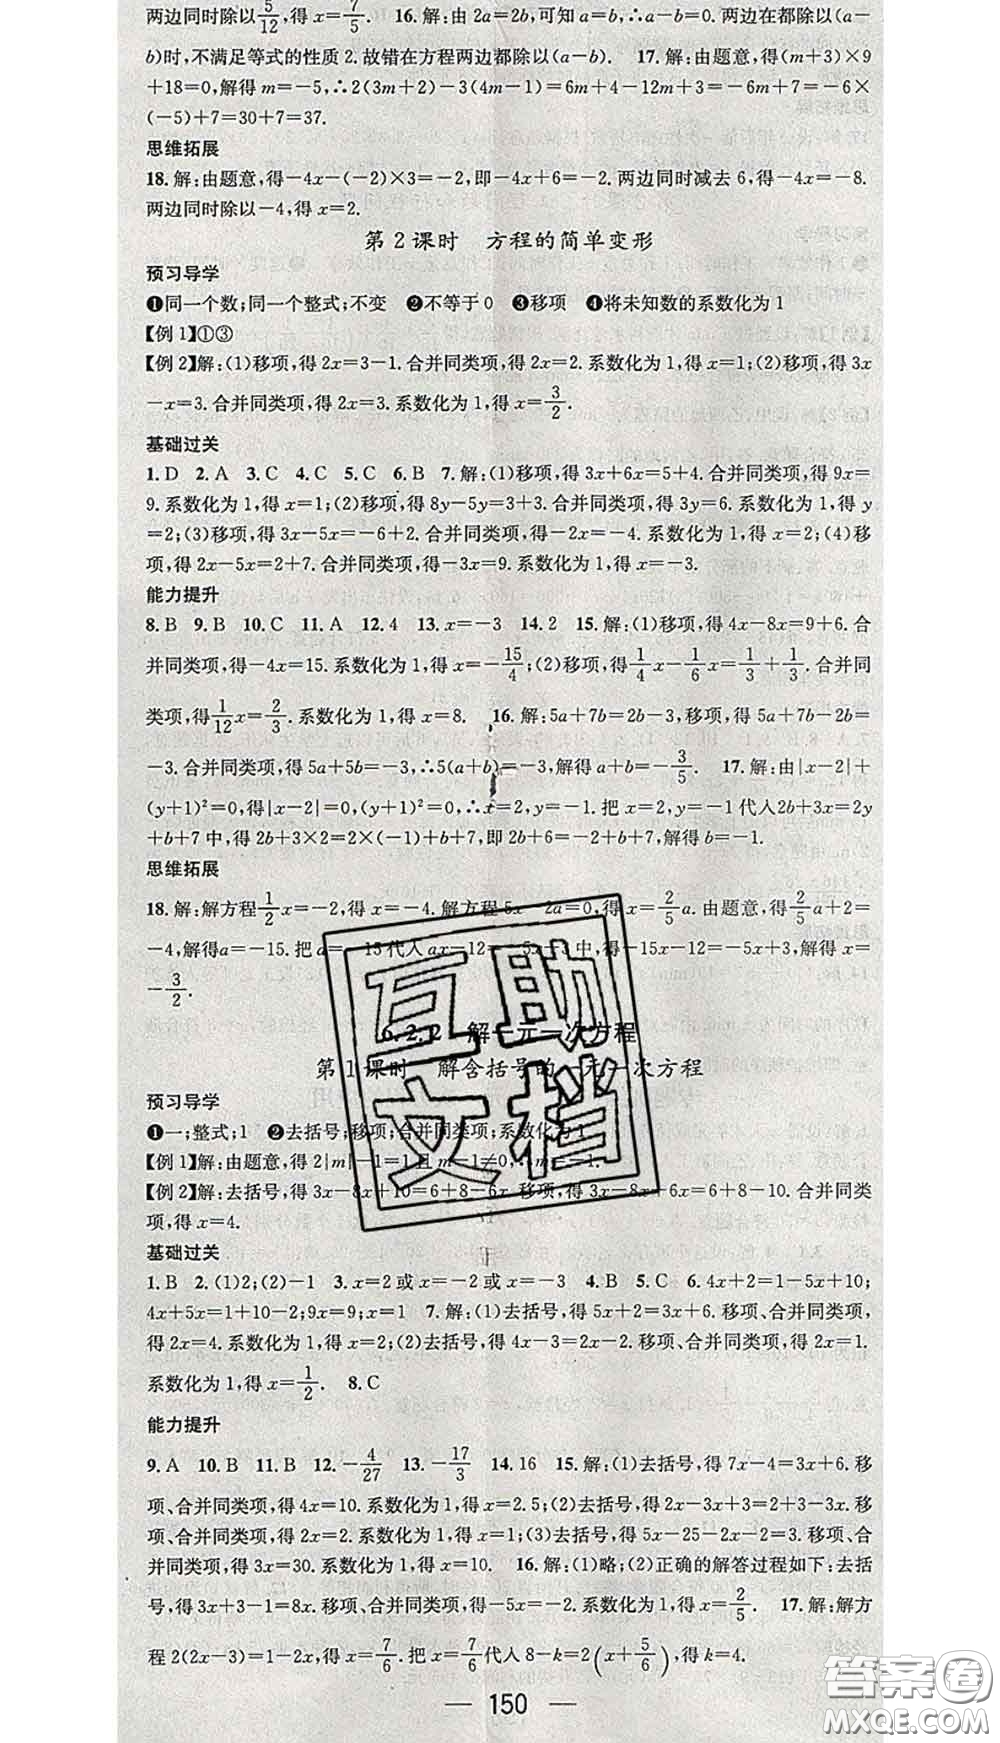 两边同时除以5/12,得x=7/5. 16.解:由2a=2b,可知a-b=0.两边在都除以(a-
b)时,不满足等式的性质2.故错在方程两边都除以(a-b). 17.解:由题意,得(m+3)×9
+18=0,解得m=-5,∴2(3m+2)-3(4m-1)=6m+4-12m+3=-6m+7=-6×
(-5)+7=30+7=37.
思维拓展
18.解:由题意,得-4x-(-2)×3=-2,即-4x+6=-2.两边同时减去6,得-4x=-8.
两边同时除以-4,得x=2.
第2课时 方程的简单变形
预习导学
❶同一个数;同一个整式;不变 ❷不等于0 ❸移项 ❹将未知数的系数化为1
【例1】①③
【例2】解:(1)移项,得2x=3-1.合并同类项,得2x=2.系数化为1,得x=1;(2)移项,得3x
-x=3.合并同类项,得2x=3.系数化为1,得x=3/2.
基础过关
1.D 2.A 3.C 4.C 5.C 6.B 7.解:(1)移项,得3x+6x=5+4.合并同类项,得9x=
9.系数化为1,得x=1;(2)移项,得8y-5y=3+3.合并同类项,得3y=6.系数化为1,得y
=2;(3)移项,得3x-5x=-6+2.合并同类项,得-2x=-4.系数化为1,得x=2;(4)移
项,得2x-5x=2+7.合并同类项,得-3x=9.系数化为1,得x=-3.
能力提升
8.B 9.B 10.C 11.A 12.4 13.x=-3 14.2 15.解:(1)移项,得4x-8x=9+6.合
并同类项,得-4x=15.系数化为1,得x=-15/4;(2)移项,得1/4x-1/6x=1/3+1/3.合并同
类项,得1/12x=2/3.系数化为1,得x=8. 16.解:5a+7b=2b-3,移项,得5a+7b-2b=
-3.合并同类项,得5a+5b=-3,∴5(a+b)=-3,解得a+b=-3/5. 17.解:由|x-2|+
(y+1)²=0,得|x-2|=0,(y+1)²=0,∴x=2,y=-1.把x=2,y=-1代入2b+3x=2y
+b+7中,得2b+3×2=2×(-1)+b+7,即2b+6=-2+b+7,解得b=-1.
思维拓展
18.解:解方程1/2x=-2,得x=-4.解方程5x-2a=0,得x=2/5a.由题意,得2/5a+2=
-4,解得a=-15.把a=-15代入ax-12=-5x+3中,得-15x-12=-5x+3,解得x=
-3/2.
6.2.2 解一元一次方程
第1课时 解含括号的一元一次方程
预习导学
❶一;整式;1 ❷去括号;移项;合并同类项;系数化为1
【例1】解:由题意,得2|m|-1=1且m-1≠0,∴m=-1.
【例2】解:去括号,得3x-8x+10=6+8-6x.移项,得3x-8x+6x=6+8-10.合并同类
项,得x=4.
基础过关
1.B 2.(1)2;(2)-1 3.x=2或x=-2或x=-3 4.B 5.C 6.4x+2=1-5x+10;
4x+5x=1+10-2;9x=9;x=1 7.解:(1)去括号,得5x+2=3x+6.移项、合并同类项,
得2x=4.系数化为1,得x=2;(2)去括号,得4x-3=2x-2.移项、合并同类项,得2x=1.
系数化为1,得x=1/2. 8.C
能力提升
9.A 10.B 11.B 12.-4/27 13.-17/3 14.16 15.解:(1)去括号,得7x-4=3x+6.移
项、合并同类项,得4x=10.系数化为1,得x=2.5;(2)去括号,得2x-3x+3=2+3-3x.移
项、合并同类项,得2x=2.系数化为1,得x=1;(3)去括号,得5x-25-2x-2=3.移项、合
并同类项,得3x=30.系数化为1,得x=10. 16.解:(1)略;(2)正确的解答过程如下:去括
号,得3x+3-1=8x.移项、合并同类项,得-5x=-2.系数化为1,得x=2/5. 17.解:解方
程2(2x-3)=1-2x,得x=7/6.把x=7/6代入8-k=2(x+5/6),得k=4.
150
互助
文档
答案圈
MXQE.COM